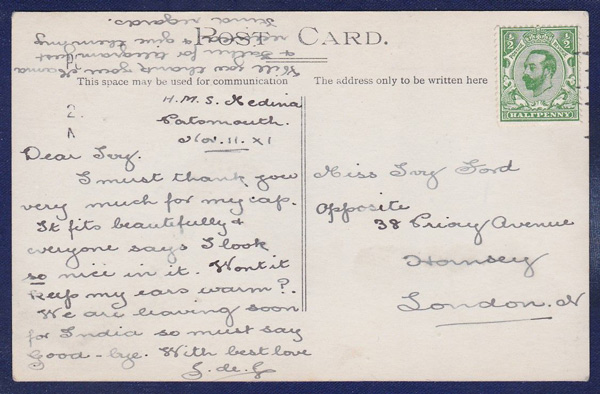 POST CARD.
This space may be used for communication
The address only to be written here
½ ½
HALFPENNY
H.M.S. Medina
Portsmouth.
Nov. 11. XI
Dear Ivy.
I must thank you
very much for my cap.
It fits beautifully &
everyone says I look
so nice in it. Wont it
keep my ears warm?.
We are leaving soon
for India so must say
Good-bye. With best love
G. de G
Will you thank your Mama
& for telegram just
& give them my
regards.
Miss Ivy Ford
Opposite
38 Priory Avenue
Hornsey
London. N